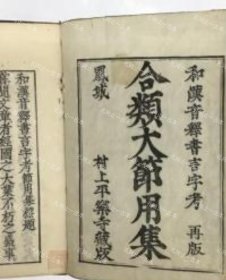 和漢音釋書言字考 再版
合類大節用集
鳳城 村上平樂寺藏版
和漢音釋書言字考節用集題
蓋聞文章者經國之大業不朽之盛事